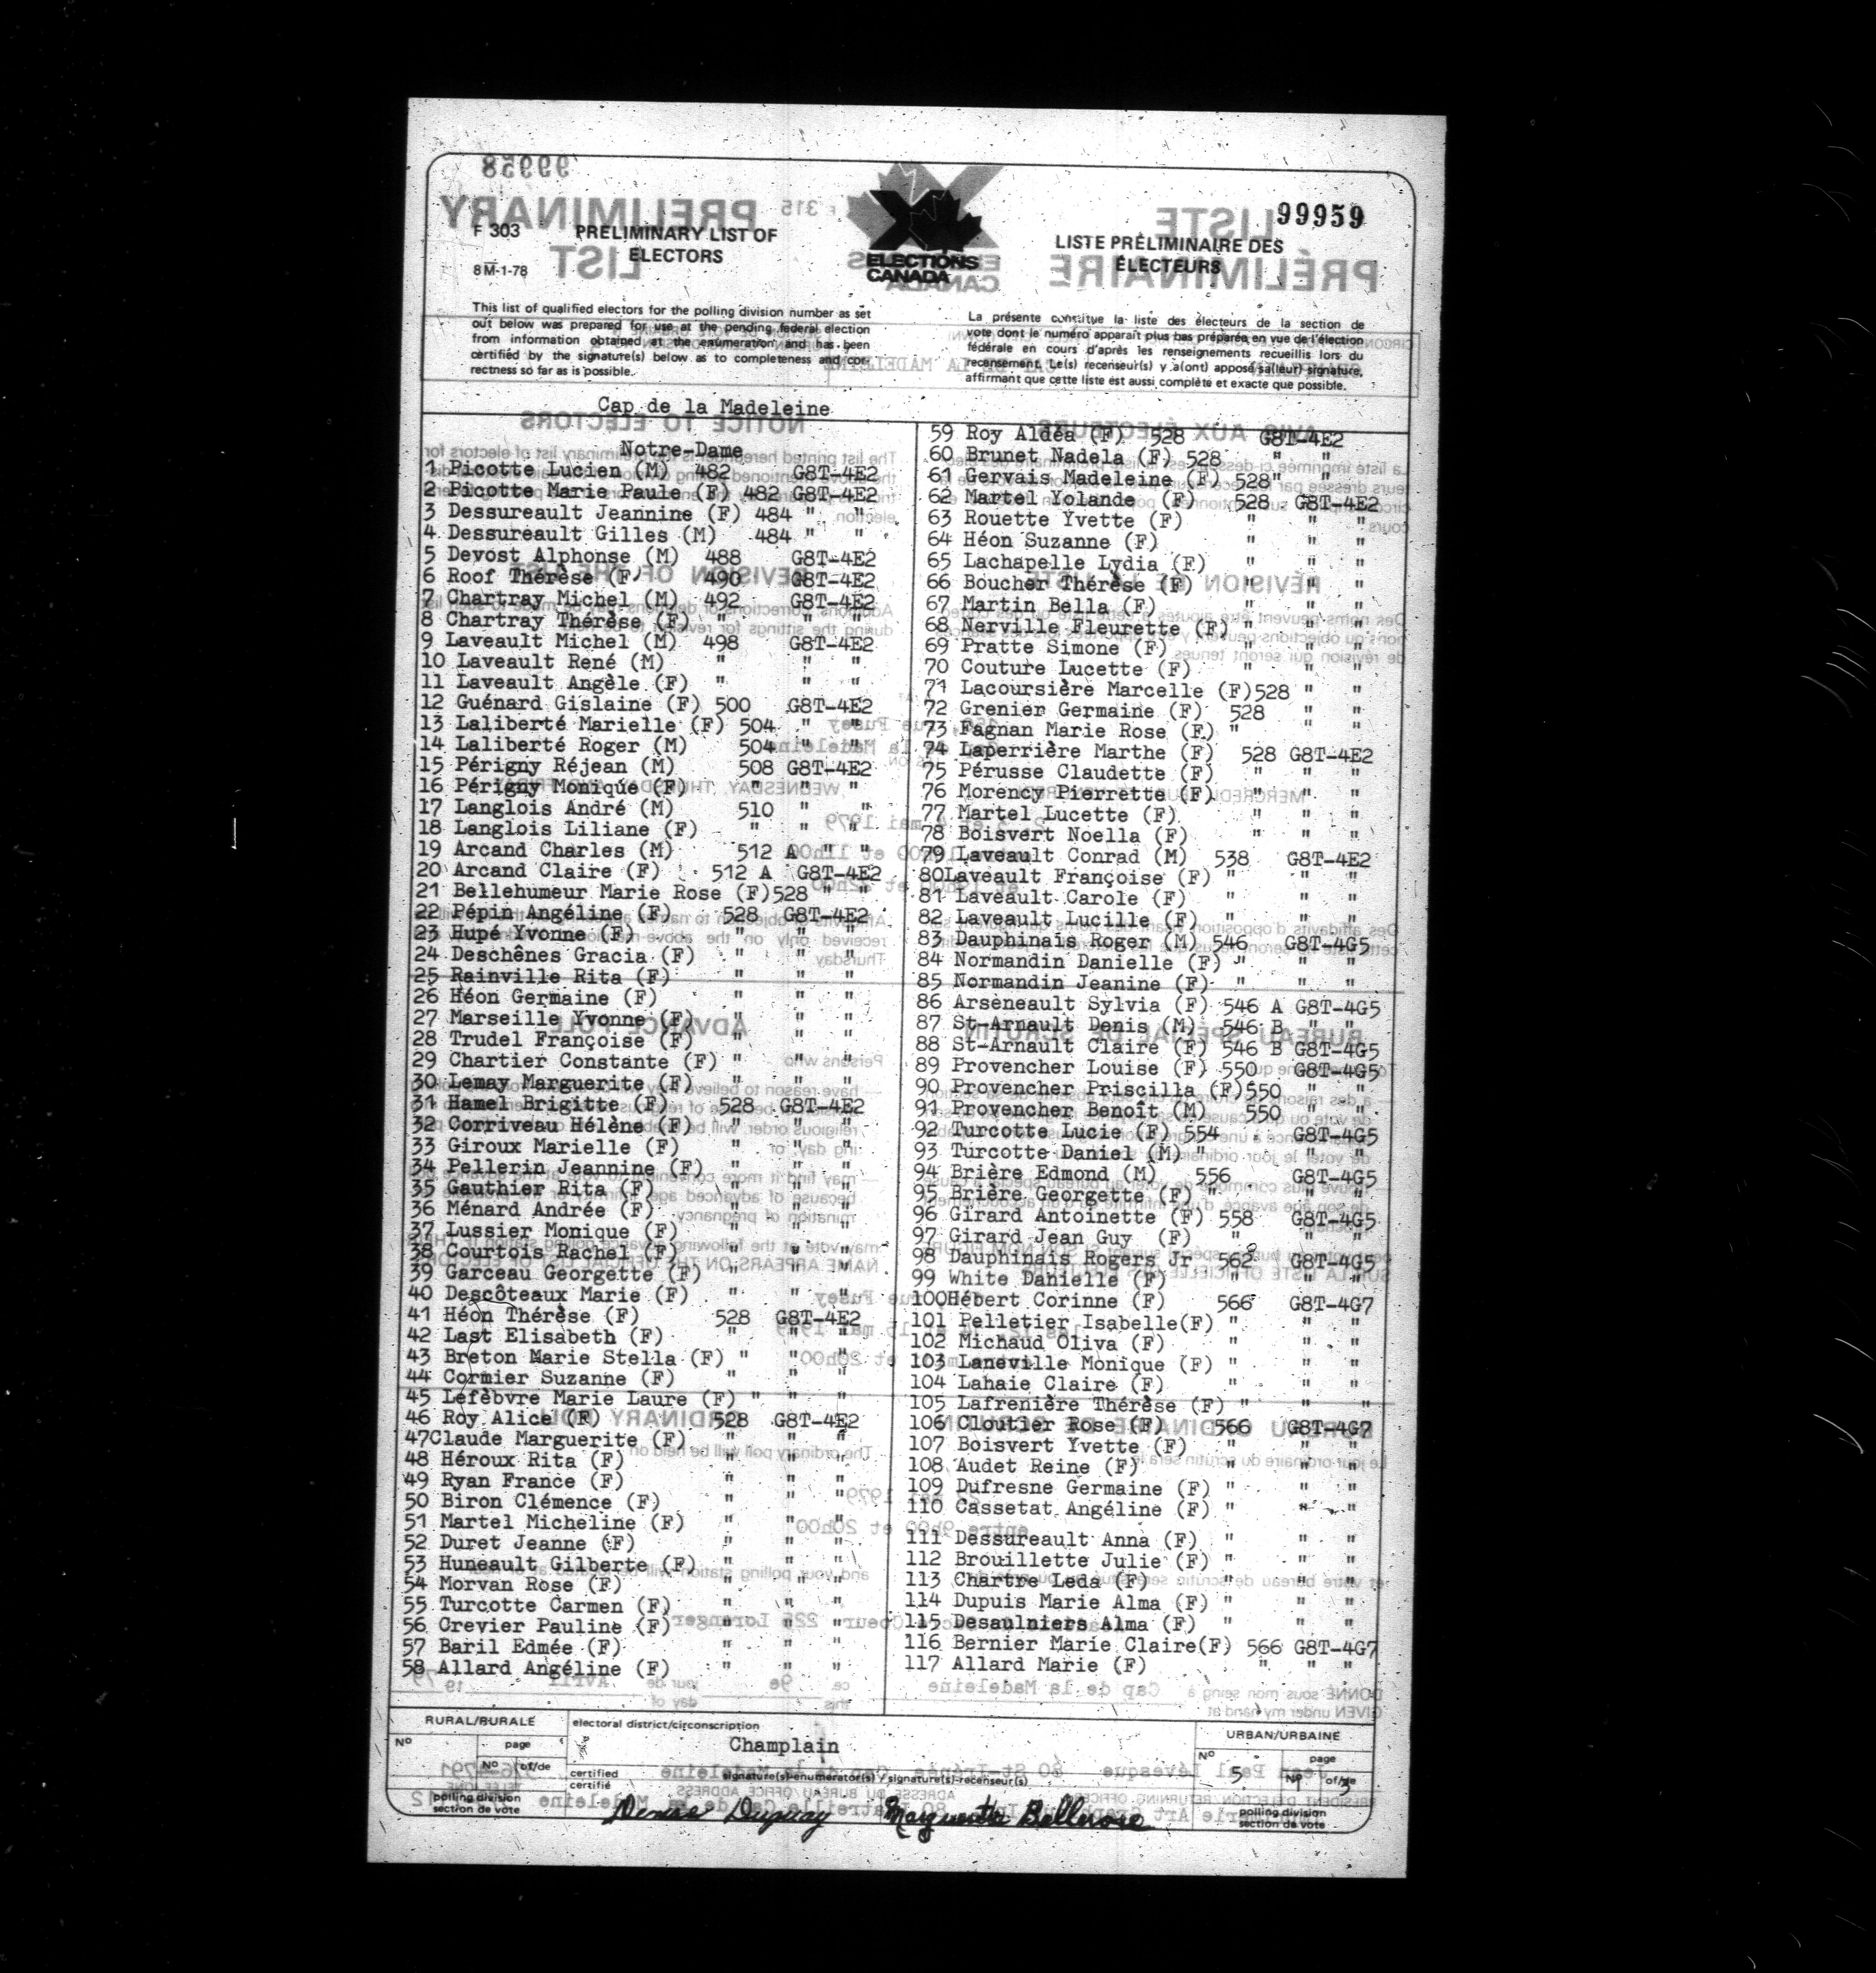 99959
F 303
PRELIMINARY LIST OF
ELECTORS
8 M-1-78
ELECTIONS
CANADA
LISTE PRÉLIMINAIRE DES
ÉLECTEURS
This list of qualified electors for the polling division number as set
out below was prepared for use at the pending federal election
from information obtained at the enumeration and has been
certified by the signature(s) below as to completeness and cor-
rectness so far as is possible.
La présente constitue la liste des électeurs de la section de
vote dont le numéro apparaît plus bas préparée en vue de l'élection
fédérale en cours d'après les renseignements recueillis lors du
recensement. Le(s) recenseur(s) y a(ont) apposé sa(leur) signature,
affirmant que cette liste est aussi complète et exacte que possible.
Cap de la Madeleine
Notre-Dame
1 Picotte Lucien (M) 482 G8T-4E2
2 Picotte Marie Paule (F) 482 G8T-4E2
3 Dessureault Jeannine (F) 484 " "
4 Dessureault Gilles (M) 484 " "
5 Devost Alphonse (M) 488 G8T-4E2
6 Roof Thérèse (F) 490 G8T-4E2
7 Chartray Michel (M) 492 G8T-4E2
8 Chartray Thérèse (F) " " "
9 Laveault Michel (M) 498 G8T-4E2
10 Laveault René (M) " " "
11 Laveault Angèle (F) " " "
12 Guénard Gislaine (F) 500 G8T-4E2
13 Laliberté Marielle (F) 504 " "
14 Laliberté Roger (M) 504 " "
15 Périgny Réjean (M) 508 G8T-4E2
16 Périgny Monique (F) " " "
17 Langlois André (M) 510 " "
18 Langlois Liliane (F) " " "
19 Arcand Charles (M) 512 A " "
20 Arcand Claire (F) 512 A G8T-4E2
21 Bellehumeur Marie Rose (F)528 " "
22 Pépin Angéline (F) 528 G8T-4E2
23 Hupé Yvonne (F) " " "
24 Deschênes Gracia (F) " " "
25 Rainville Rita (F) " " "
26 Héon Germaine (F) " " "
27 Marseille Yvonne (F) " " "
28 Trudel Françoise (F) " " "
29 Chartier Constante (F) " " "
30 Lemay Marguerite (F) " " "
31 Hamel Brigitte (F) 528 G8T-4E2
32 Corriveau Hélène (F) " " "
33 Giroux Marielle (F) " " "
34 Pellerin Jeannine (F) " " "
35 Gauthier Rita (F) " " "
36 Ménard Andrée (F) " " "
37 Lussier Monique (F) " " "
38 Courtois Rachel (F) " " "
39 Garceau Georgette (F) " " "
40 Descôteaux Marie (F) " " "
41 Héon Thérèse (F) 528 G8T-4E2
42 Last Elisabeth (F) " " "
43 Breton Marie Stella (F) " " "
44 Cormier Suzanne (F) " " "
45 Lefèbvre Marie Laure (F) " " "
46 Roy Alice (F) 528 G8T-4E2
47Claude Marguerite (F) " " "
48 Héroux Rita (F) " " "
49 Ryan France (F) " " "
50 Biron Clémence (F) " " "
51 Martel Micheline (F) " " "
52 Duret Jeanne (F) " " "
53 Huneault Gilberte (F) " " "
54 Morvan Rose (F) " " "
55 Turcotte Carmen (F) " " "
56 Crevier Pauline (F) " " "
57 Baril Edmée (F) " " "
58 Allard Angéline (F) " " "
59 Roy Aldéa (F) 528 G8T-4E2
60 Brunet Nadela (F) 528 " "
61 Gervais Madeleine (F) 528" "
62 Martel Yolande (F) 528 G8T-4E2
63 Rouette Yvette (F) " " "
64 Héon Suzanne (F) " " "
65 Lachapelle Lydia (F) " " "
66 Boucher Thérèse (F) " " "
67 Martin Bella (F) " " "
68 Nerville Fleurette (F) " " "
69 Pratte Simone (F) " " "
70 Couture Lucette (F) " " "
71 Lacoursière Marcelle (F)528 " "
72 Grenier Germaine (F) 528 " "
73 Fagnan Marie Rose (F) " " "
74 Laperrière Marthe (F) 528 G8T-4E2
75 Pérusse Claudette (F) " " "
76 Morency Pierrette (F) " " "
77 Martel Lucette (F) " " "
78 Boisvert Noella (F) " " "
79 Laveault Conrad (M) 538 G8T-4E2
80Laveault Françoise (F) " " "
81 Laveault Carole (F) " " "
82 Laveault Lucille (F) " " "
83 Dauphinais Roger (M) 546 G8T-4G5
84 Normandin Danielle (F) " " "
85 Normandin Jeanine (F) " " "
86 Arseneault Sylvia (F) 546 A G8T-4G5
87 St-Arnault Denis (M) 546 B " "
88 St-Arnault Claire (F) 546 B G8T-4G5
89 Provencher Louise (F) 550 G8T-4G5
90 Provencher Priscilla (F)550 " "
91 Provencher Benoît (M) 550 " "
92 Turcotte Lucie (F) 554 G8T-4G5
93 Turcotte Daniel (M) " " "
94 Brière Edmond (M) 556 G8T-4G5
95 Brière Georgette (F) " " "
96 Girard Antoinette (F) 558 G8T-4G5
97 Girard Jean Guy (F) " " "
98 Dauphinais Rogers Jr 562 G8T-4G5
99 White Danielle (F) " " "
100Hébert Corinne (F) 566 G8T-4G7
101 Pelletier Isabelle(F) " " "
102 Michaud Oliva (F) " " "
103 Laneville Monique (F) " " "
104 Lahaie Claire (F) " " "
105 Lafrenière Thérèse (F) " " "
106 Cloutier Rose (F) 566 G8T-4G7
107 Boisvert Yvette (F) " " "
108 Audet Reine (F) " " "
109 Dufresne Germaine (F) " " "
110 Cassetat Angéline (F) " " "
111 Dessureault Anna (F) " " "
112 Brouillette Julie (F) " " "
113 Chartre Leda (F) " " "
114 Dupuis Marie Alma (F) " " "
115 Desaulniers Alma (F) " " "
116 Bernier Marie Claire(F) 566 G8T-4G7
117 Allard Marie (F) " " "
RURAL/RURALE
Nº
page
Nº of/de
polling division
section de vote
electoral district/circonscription
Champlain
certified
certifié
signature(s)-enumerator(s)/signature(s)-recenseur(s)
Denise Dupuay Marguerite Bellerose
URBAN/URBAINE
Nº
5
page
Nº 1 of/de 3
polling division
section de vote